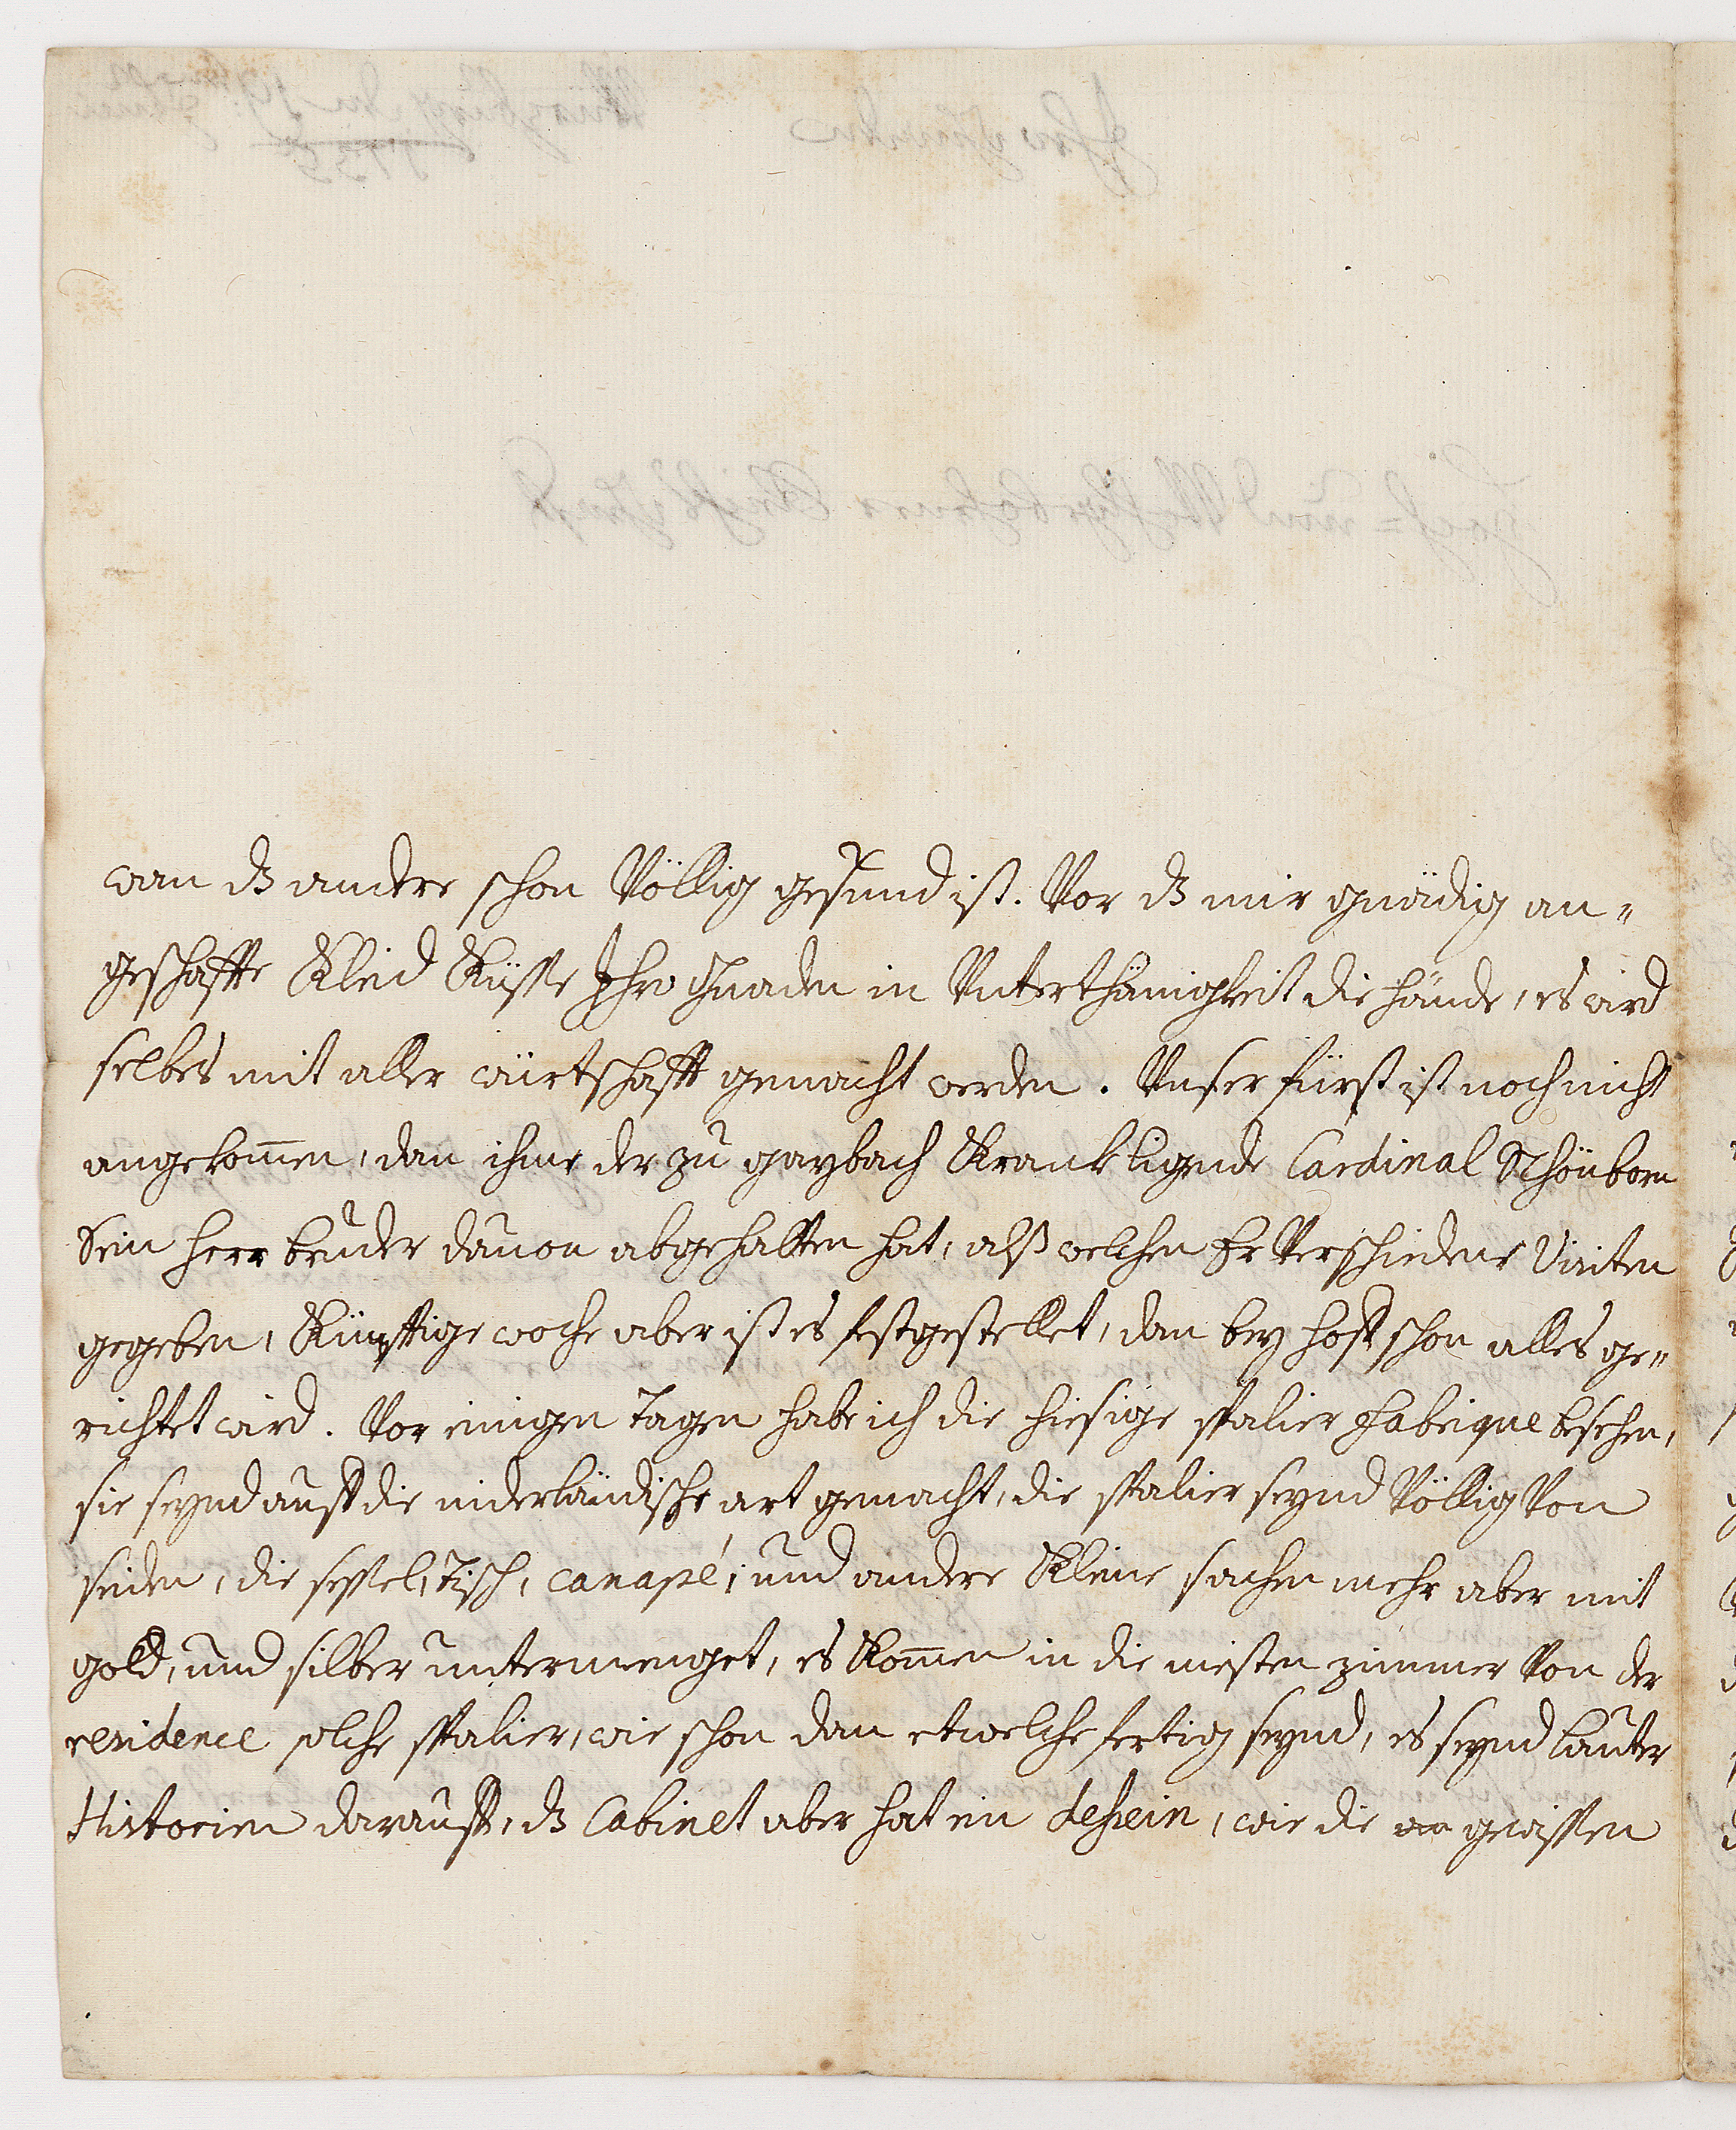 wan dz andere schon Völlig gesund ist. Vor dz mir gnädig an„
geschaffte Kleid Küsse Ihro Gnaden in Unterthänigkeit die hände, es wird
selbes mit aller würtschafft gemacht werden. Unser fürst ist noch nicht
angekom̄en, dan ihme der zu gaybach Krank ligende Cardinal Schönborn
Sein herr bruder dauon abgehalten hat, alß welchen Er Verschiedene Visiten
gegeben, Künfftige woche aber ist es festgestellet, dan bey hoff schon alles ge„
richtet wird. Vor einigen Tagen habe ich die hiesige spalier fabrique besehen,
sie seynd auff die niderländische art gemacht, die spalier seynd Völlig Von
seiden, die sessel, Tisch, canapé, und andere Kleine sachen mehr aber mit
gold, und silber untermenget, es Kom̄en in die meisten zimmer Von der
residence solche spalier, wie schon dan etwelche fertig seynd, es seynd lauter
Historien darauff, dz Cabinet aber hat ein dessein, wie die gewissen